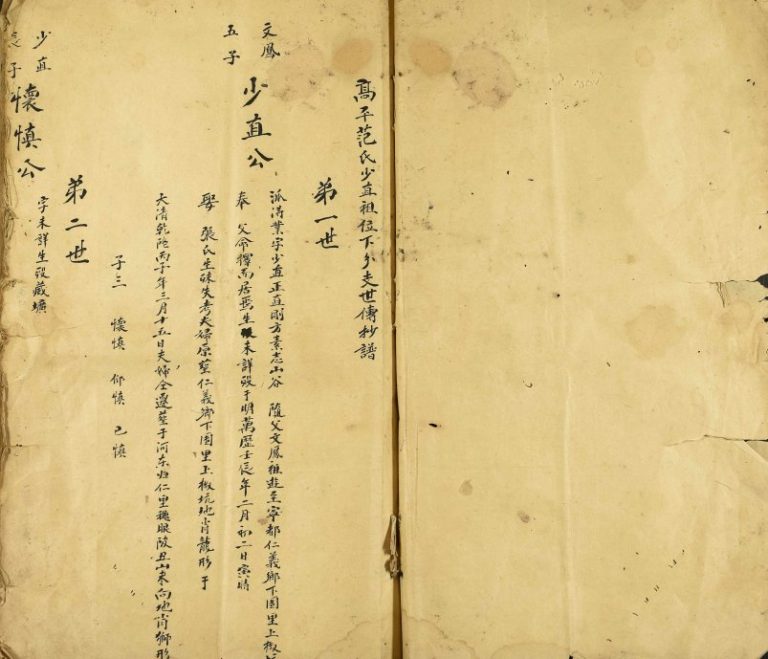 高平范氏少直祖位下乡支世傳秒譜
第一世
文鳳
五子
少直公
派洪業字少直正直剛方素志山谷 隨父文鳳祖遊至寧都仁義鄉下團里上椒
奉 父命擇而居焉生 未詳殁于明萬歷壬辰年二月初二日寅時
娶 張氏生殁失考夫婦原塟仁義鄉下團里上椒坑地肖龍形于
大清乾隆丙子年三月十五日夫婦仝遷塟于河东 仁里 艮山未向地肖獅形
子三 懷慎 仰慎 己慎
第二世
少直
長子
懷慎公
字未詳生殁葬壙